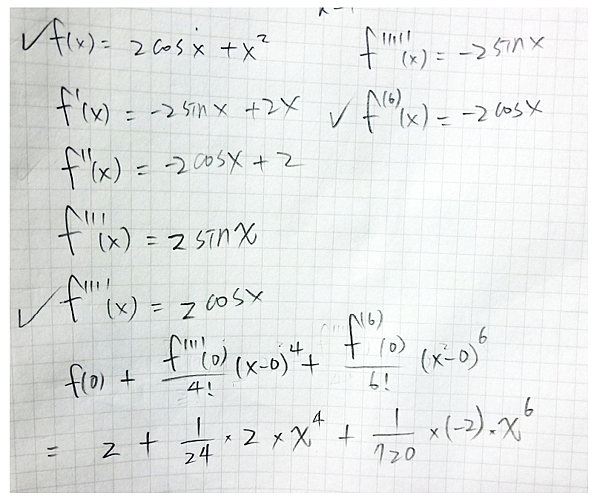 ✓ f(x) = 2cosx + x²
f'(x) = -2sinx + 2x
f''(x) = -2cosx + 2
f'''(x) = 2sinx
✓ f''''(x) = 2cosx
f'''''(x) = -2sinx
✓ f⁽⁶⁾(x) = -2cosx
f(0) + f''''(0)/4! (x-0)⁴ + f⁽⁶⁾(0)/6! (x-0)⁶
= 2 + 1/24 × 2 × x⁴ + 1/720 × (-2) · x⁶